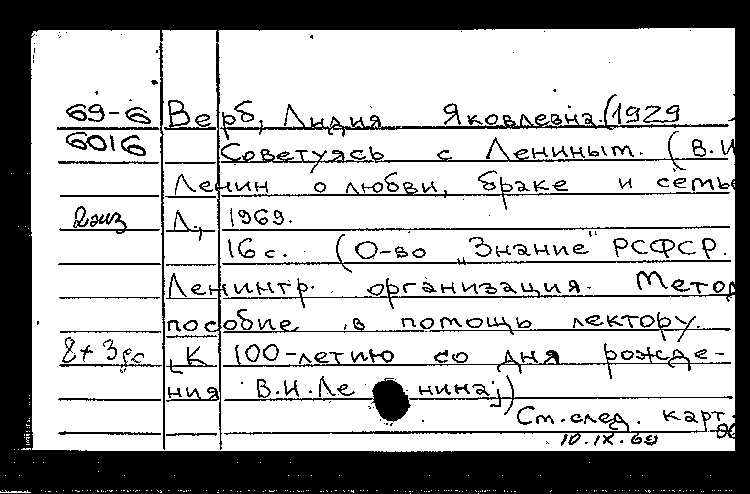 69-6 Верб, Лидия Яковлевна (1929
6016 Советуясь с Лениным. (В.И
Ленин о любви, браке и семье
2 экз Л., 1969.
16 с. (О-во "Знание" РСФСР.
Ленингр. организация. Метод
пособие в помощь лектору.
[К 100-летию со дня рожде-
ния В.И.Ленина])
См. след. карт.
10.IX.69